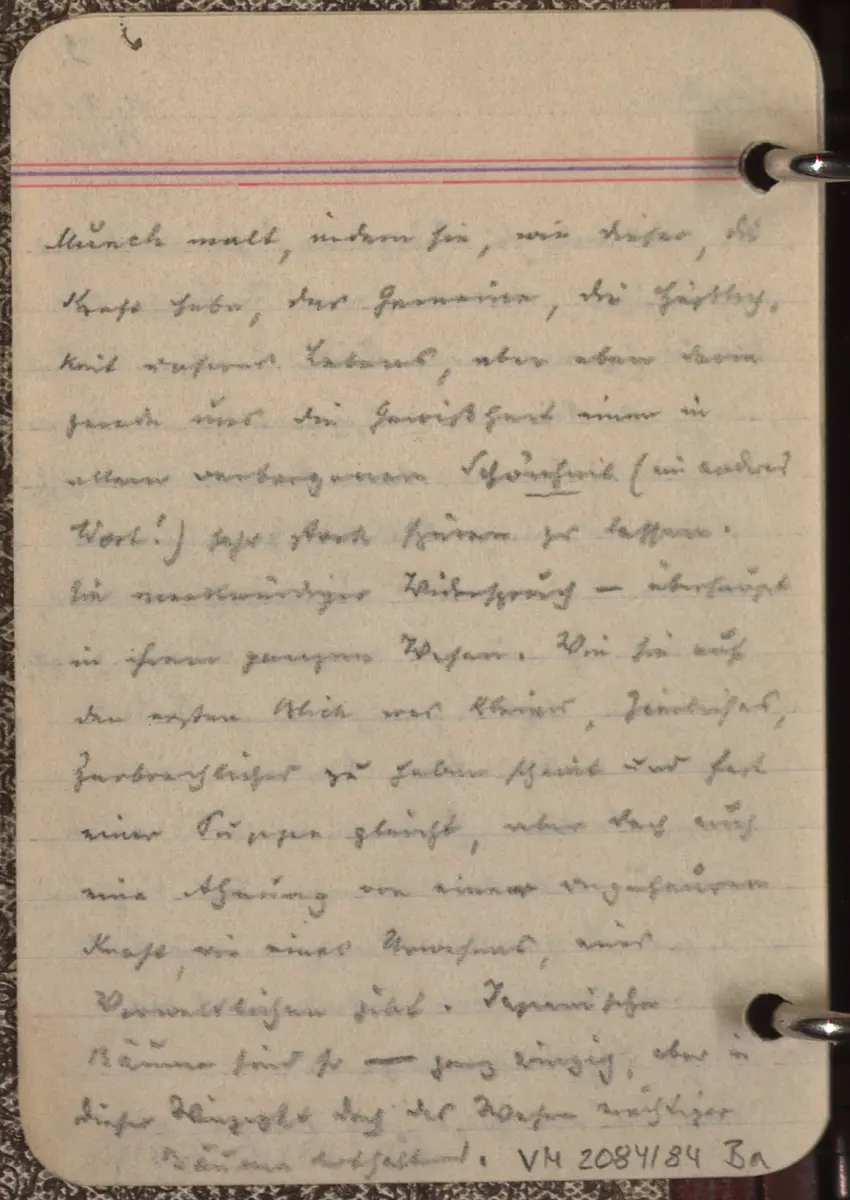 Munch malt, indem sie, wie dieser, die
Kraft habe, das Gemeine, die Hässlich-
keit unseres Lebens, aber eben darin
gerade uns die Gewißheit einer in
allem verborgenen Schönheit (ein anderes
Wort!) sehr stark spüren zu lassen.
Ein merkwürdiger Widerspruch — überhaupt
in ihrem ganzen Wesen. Wie sie auf
den ersten Blick was Kleines, Zierliches,
Zerbrechliches zu haben scheint und fast
einer Puppe gleicht, aber doch auch
eine Ahnung von einer ungeheuren
Kraft, wie eines Urwesens, eines
Vorweltlichen gibt. Japanische
Bäume sind so — ganz winzig, aber in
dieser Winzigkt doch das Wesen mächtiger
Bäume enthaltend. VM 2084/84 Ba